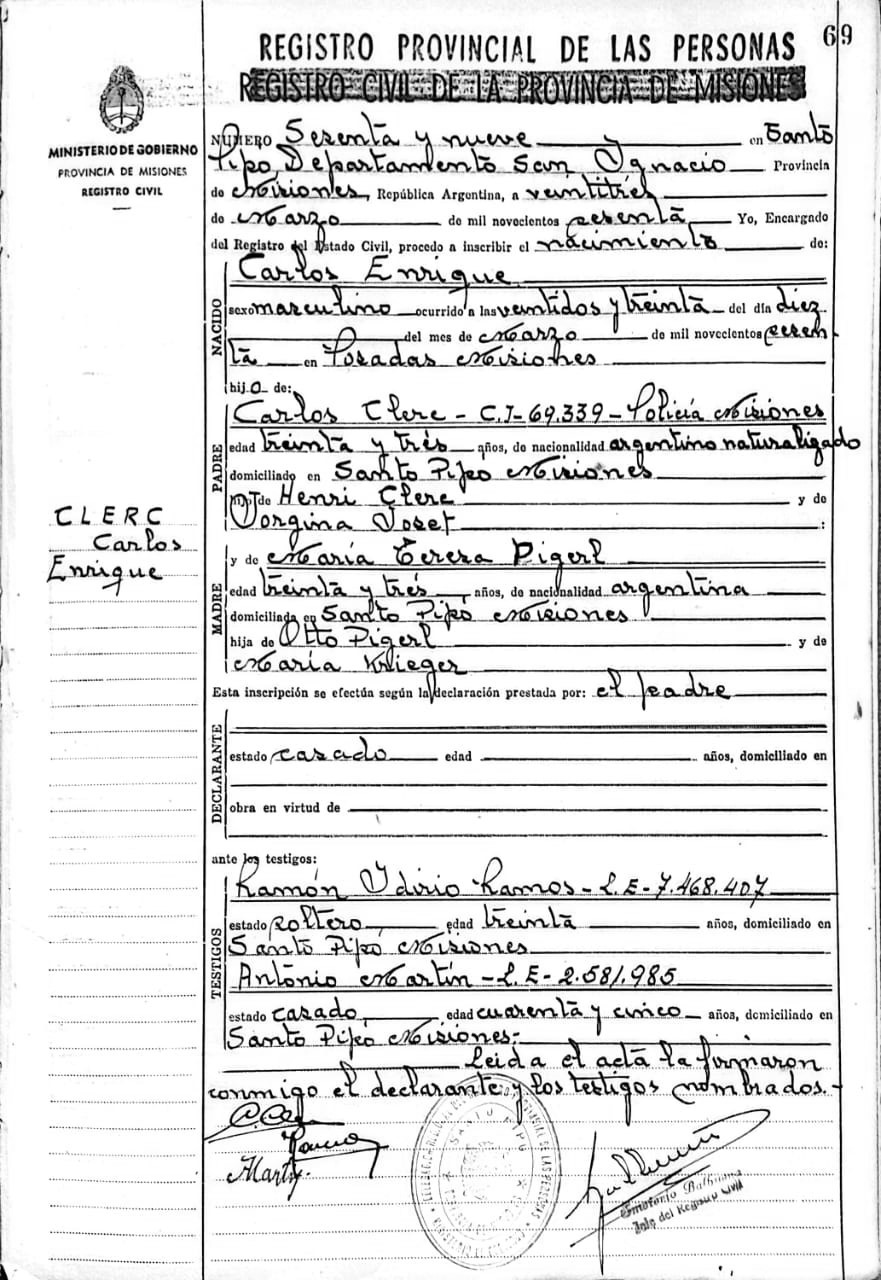 69
REGISTRO PROVINCIAL DE LAS PERSONAS
REGISTRO CIVIL DE LA PROVINCIA DE MISIONES
MINISTERIO DE GOBIERNO
PROVINCIA DE MISIONES
REGISTRO CIVIL
NUMERO Sesenta y nueve en Santo
Pipo Departamento San Ignacio Provincia
de Misiones, República Argentina, a veintitrés
de Marzo de mil novecientos sesenta Yo, Encargado
del Registro del Estado Civil, procedo a inscribir el nacimiento de:
NACIDO
Carlos Enrique
sexo masculino ocurrido a las veintidos y treinta del día diez
del mes de Marzo de mil novecientos sesen
ta en Posadas Misiones
hijo de:
PADRE
Carlos Clerc - C.I- 69.339 - Policía Misiones
edad treinta y trés años, de nacionalidad argentino naturalizado
domiciliado en Santo Pipo Misiones
hijo de Henri Clerc y de
Josef :
CLERC
Carlos
Enrique
MADRE
y de María Teresa Pigerl
edad treinta y trés, años, de nacionalidad argentina
domiciliada en Santo Pipó Misiones
hija de Otto Pigerl y de
María Krieger
Esta inscripción se efectúa según la declaración prestada por: el padre
DECLARANTE
estado casado edad años, domiciliado en
obra en virtud de
ante los testigos:
TESTIGOS
Ramón Idirio Ramos - L.E - 7.468.407
estado soltero edad treinta años, domiciliado en
Santo Pipó Misiones
Antonio Martín - L.E - 2.581.985
estado casado edad cuarenta y cinco años, domiciliado en
Santo Pipó Misiones.-
Leida el acta la firmaron
conmigo el declarante y los testigos nombrados.-
Jefe del Registro Civil